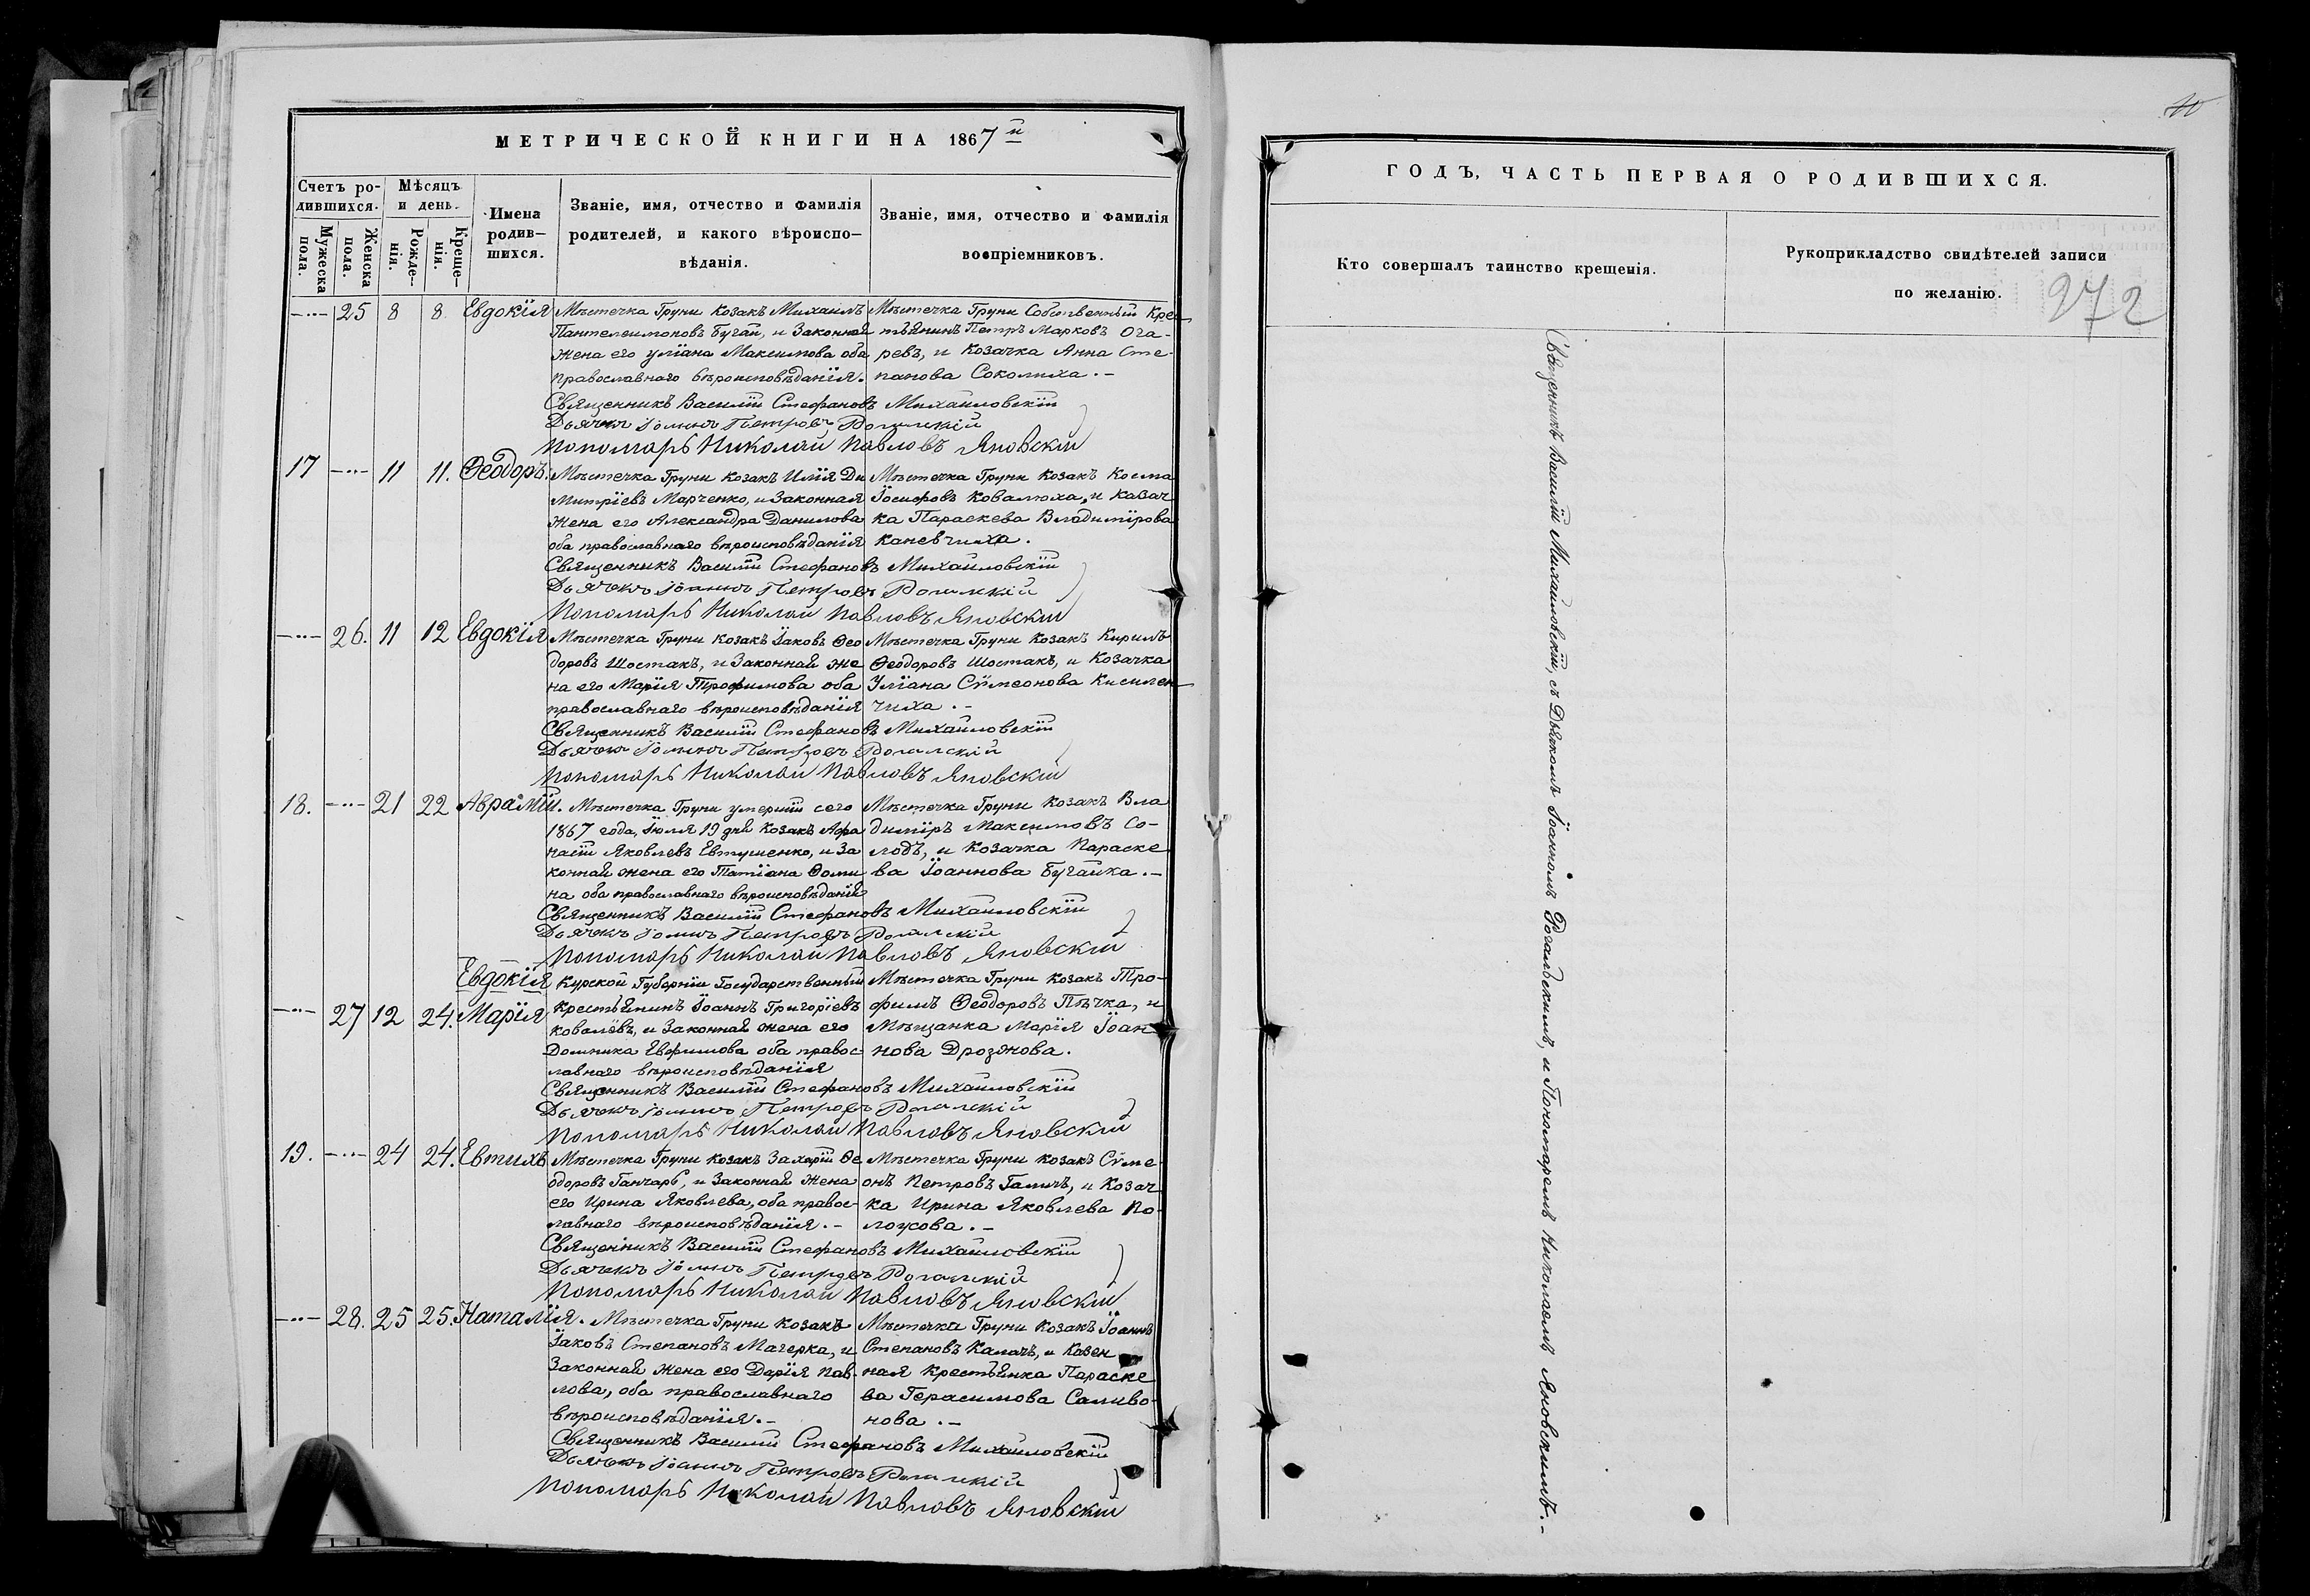 МЕТРИЧЕСКОЙ КНИГИ НА 1867й
Счетъ ро-
дившихся.
Мужеска
пола.
Женска
пола.
Мѣсяцъ
и день.
Рожде-
нія.
Креще-
нія.
Имена
родив-
шихся.
Званіе, имя, отчество и фамилія
родителей, и какого вѣроиспо-
вѣданія.
Званіе, имя, отчество и фамилія
воспріемниковъ.
25 8 8 Евдокія
Мѣстечка Груни козакъ Михаилъ
Пантелеимоновъ Бугай, и законная
жена его Уліана Максимова оба
православнаго вѣроисповѣданія.
Мѣстечка Груни Собственный Кре-
стьянинъ Петръ Марковъ Ога-
ревъ, и Козачка Анна Сте-
панова Соколиха.-
Священникъ Василій Стефановъ Михайловскій
Дьячекъ Іоаннъ Петровъ Рогальскій
Пономарь Николай Павловъ Яновскій
17 11 11. Ѳеодоръ.
Мѣстечка Груни козакъ Илія Ди
митріевъ Марченко, и законная
жена его Александра Данилова
оба православнаго вѣроисповѣданія
Мѣстечка Груни Козакъ Косма
Іосифовъ Ковалюха, и казач
ка Параскева Владимірова
Каневчиха.
Священникъ Василій Стефановъ Михайловскій
Дьячекъ Іоаннъ Петровъ Рогальскій
Пономарь Николай Павловъ Яновскій
26. 11 12 Евдокія
Мѣстечка Груни козакъ Іаковъ Ѳео
доровъ Шостакъ, и Законная же
на его Марія Трофимова оба
православнаго вѣроисповѣданія
Мѣстечка Груни Козакъ Кирилъ
Ѳеодоровъ Шостакъ, и Козачка
Уліана Сѵмеонова Кисилен-
чиха.-
Священникъ Василій Стефановъ Михайловскій
Дьячекъ Іоаннъ Петровъ Рогальскій
Пономарь Николай Павловъ Яновскій
18. 21 22 Аврамій.
Мѣстечка Груни умершій сего
1867 года, Іюля 19 дня Козакъ Афа
насій Яковлевъ Евтушенко, и за
конная жена его Татіана Ѳоми
на оба православнаго вѣроисповѣданія
Мѣстечка Груни Козакъ Вла
диміръ Максимовъ Со-
лодъ, и Козачка Параске
ва Іоаннова Бугайка.-
Священникъ Василій Стефановъ Михайловскій
Дьячекъ Іоаннъ Петровъ Рогальскій
Пономарь Николай Павловъ Яновскій
Евдокія
27 12 24. Марія
Курской Губерніи Государственный
крестьянинъ Іоаннъ Григоріевъ
Ковалёвъ, и Законная жена его
Домника Евфимова оба правос
лавнаго вѣроисповѣданія
Мѣстечка Груни козакъ Тро-
фимъ Ѳеодоровъ Пѣчка, и
Мѣщанка Марія Іоан
нова Дрозжова.
Священникъ Василій Стефановъ Михайловскій
Дьячекъ Іоаннъ Петровъ Рогальскій
Пономарь Николай Павловъ Яновскій
19. 24 24. Евтихъ
Мѣстечка Груни козакъ Захарій Ѳе
одоровъ Ганчарь, и Законная Жена
его Ирина Яковлева, оба правос-
лавнаго вѣроисповѣданія.-
Мѣстечка Груни козакъ Сѵме
онъ Петровъ Галичъ, и Козач
ка Ирина Яковлева По-
ложова.-
Священникъ Василій Стефановъ Михайловскій
Дьячекъ Іоаннъ Петровъ Рогальскій
Пономарь Николай Павловъ Яновскій
28. 25 25. Наталія.
Мѣстечка Груни Козакъ
Іаковъ Степановъ Магерка, и
Законная жена его Дарія Пав-
лова, оба православнаго
вѣроисповѣданія.-
Мѣстечка Груни Козакъ Іоаннъ
Степановъ Калачъ, и Казен
ная крестьянка Параске
ва Герасимова Саливо-
нова.-
Священникъ Василій Стефановъ Михайловскій
Дьячекъ Іоаннъ Петровъ Рогальскій
Пономарь Николай Павловъ Яновскій
ГОДЪ, ЧАСТЬ ПЕРВАЯ О РОДИВШИХСЯ.
Кто совершалъ таинство крещенія.
Рукоприкладство свидѣтелей записи
по желанію.
272
Священникъ Василій Михайловскій, съ Дьячкомъ Іоанномъ Рогальскимъ, и Пономаремъ Николаемъ Яновскимъ.-